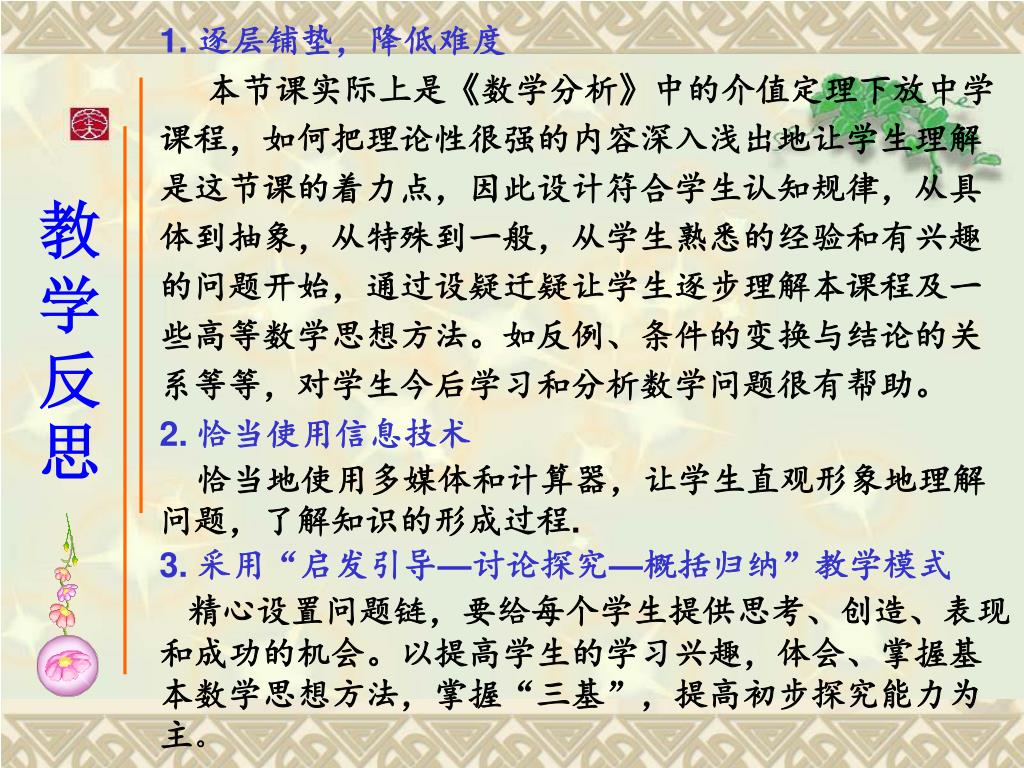 教学反思
1. 逐层铺垫，降低难度
本节课实际上是《数学分析》中的介值定理下放中学
课程，如何把理论性很强的内容深入浅出地让学生理解
是这节课的着力点，因此设计符合学生认知规律，从具
体到抽象，从特殊到一般，从学生熟悉的经验和有兴趣
的问题开始，通过设疑迁疑让学生逐步理解本课程及一
些高等数学思想方法。如反例、条件的变换与结论的关
系等等，对学生今后学习和分析数学问题很有帮助。
2. 恰当使用信息技术
恰当地使用多媒体和计算器，让学生直观形象地理解
问题，了解知识的形成过程.
3. 采用“启发引导—讨论探究—概括归纳”教学模式
精心设置问题链，要给每个学生提供思考、创造、表现
和成功的机会。以提高学生的学习兴趣，体会、掌握基
本数学思想方法，掌握“三基”，提高初步探究能力为
主。